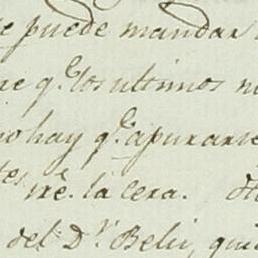 e puede mandar
re q.e los ultimos n
no hay q.e apurarse
tes
tre. la cera. 
del D.r Beli, qui